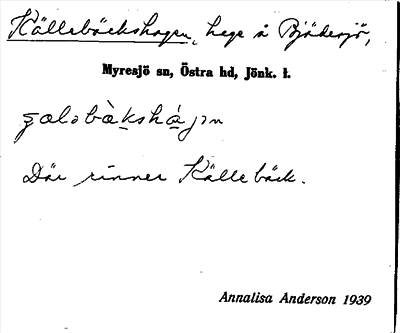 Källebäckshagen, hage å Bjädesjö,
Myresjö sn, Östra hd, Jönk. l.
Där rinner Källebäck.
Annalisa Anderson 1939